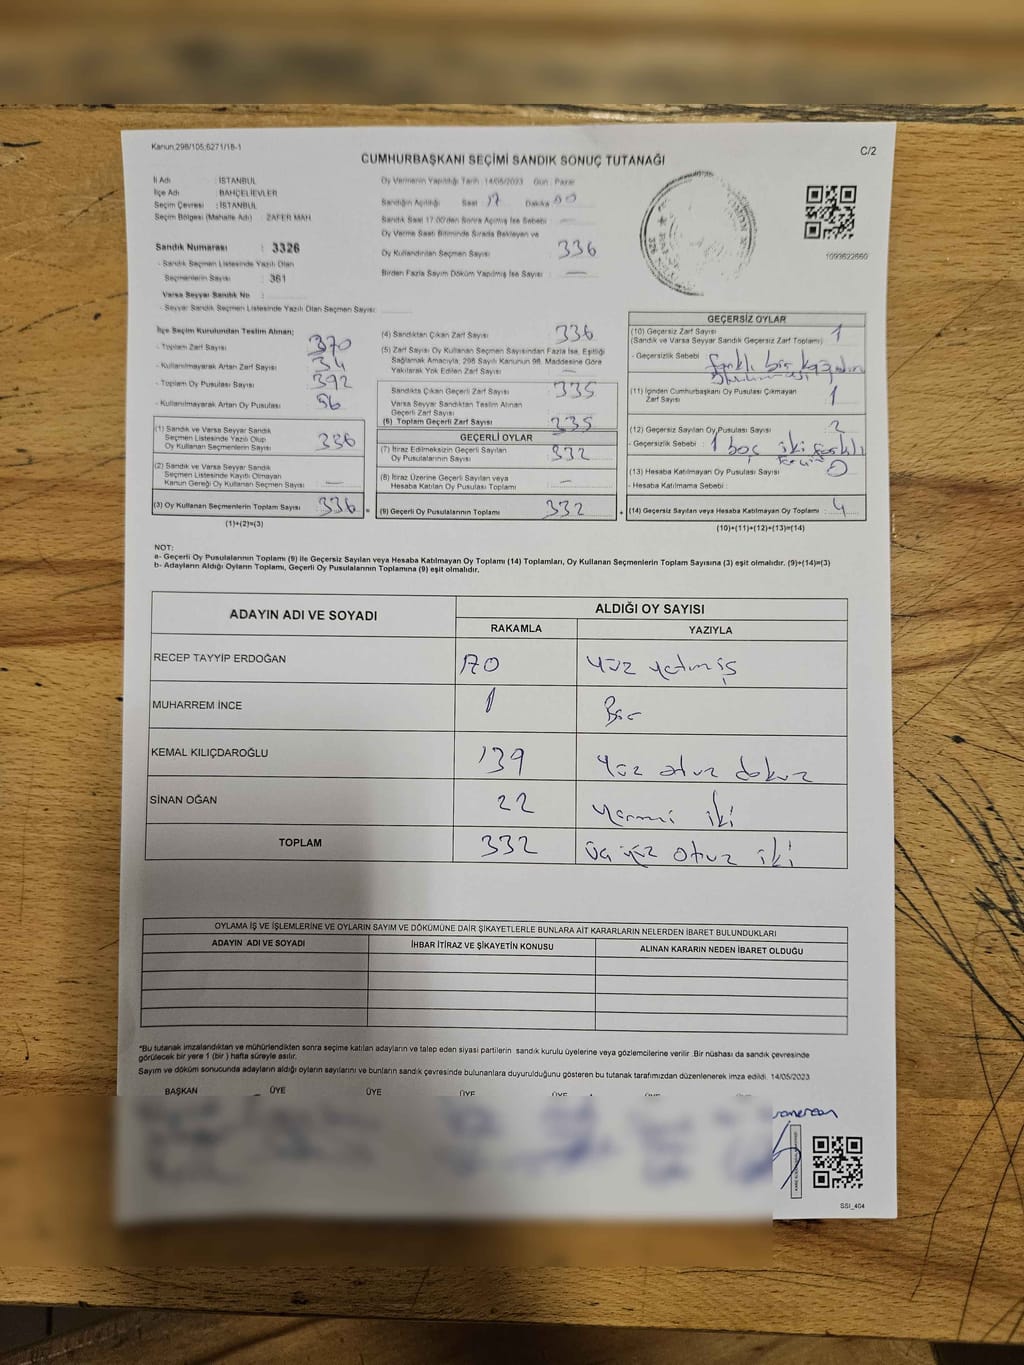 Kanun;298/105;6271/18-1
C/2
CUMHURBAŞKANI SEÇİMİ SANDIK SONUÇ TUTANAĞI
İl Adı : İSTANBUL
İlçe Adı : BAHÇELİEVLER
Seçim Çevresi : İSTANBUL
Seçim Bölgesi (Mahalle Adı) : ZAFER MAH
Sandık Numarası : 3326
- Sandık Seçmen Listesinde Yazılı Olan
Seçmenlerin Sayısı : 361
Varsa Seyyar Sandık No :
- Seyyar Sandık Seçmen Listesinde Yazılı Olan Seçmen Sayısı:
Oy Vermenin Yapıldığı Tarih :14/05/2023 Gün : Pazar
Sandığın Açıldığı Saat 17 Dakika 00
Sandık Saat 17:00'den Sonra Açılmış İse Sebebi —
Oy Verme Saati Bitiminde Sırada Bekleyen ve
Oy Kullandırılan Seçmen Sayısı 336
Birden Fazla Sayım Döküm Yapılmış İse Sayısı —
1093622660
İlçe Seçim Kurulundan Teslim Alınan;
- Toplam Zarf Sayısı 370
- Kullanılmayarak Artan Zarf Sayısı 34
- Toplam Oy Pusulası Sayısı 392
- Kullanılmayarak Artan Oy Pusulası 56
(1) Sandık ve Varsa Seyyar Sandık
Seçmen Listesinde Yazılı Olup
Oy Kullanan Seçmenlerin Sayısı 336
(2) Sandık ve Varsa Seyyar Sandık
Seçmen Listesinde Kayıtlı Olmayan
Kanun Gereği Oy Kullanan Seçmen Sayısı —
(3) Oy Kullanan Seçmenlerin Toplam Sayısı 336
(1)+(2)=(3)
(4) Sandıktan Çıkan Zarf Sayısı 336
(5) Zarf Sayısı Oy Kullanan Seçmen Sayısından Fazla İse, Eşitliği
Sağlamak Amacıyla; 298 Sayılı Kanunun 98. Maddesine Göre
Yakılarak Yok Edilen Zarf Sayısı —
Sandıkta Çıkan Geçerli Zarf Sayısı 335
Varsa Seyyar Sandıktan Teslim Alınan
Geçerli Zarf Sayısı
(6) Toplam Geçerli Zarf Sayısı 335
GEÇERLİ OYLAR
(7) İtiraz Edilmeksizin Geçerli Sayılan
Oy Pusulalarının Sayısı 332
(8) İtiraz Üzerine Geçerli Sayılan veya
Hesaba Katılan Oy Pusulası Toplamı —
(9) Geçerli Oy Pusulalarının Toplamı 332
GEÇERSİZ OYLAR
(10) Geçersiz Zarf Sayısı 1
(Sandık ve Varsa Seyyar Sandık Geçersiz Zarf Toplamı)
- Geçersizlik Sebebi farklı bir
(11) İçinden Cumhurbaşkanı Oy Pusulası Çıkmayan
Zarf Sayısı 1
(12) Geçersiz Sayılan Oy Pusulası Sayısı 2
- Geçersizlik Sebebi : 1 boş iki farklı
(13) Hesaba Katılmayan Oy Pusulası Sayısı 0
- Hesaba Katılmama Sebebi :
(14) Geçersiz Sayılan veya Hesaba Katılmayan Oy Toplamı : 4
(10)+(11)+(12)+(13)=(14)
NOT:
a- Geçerli Oy Pusulalarının Toplamı (9) ile Geçersiz Sayılan veya Hesaba Katılmayan Oy Toplamı (14) Toplamları, Oy Kullanan Seçmenlerin Toplam Sayısına (3) eşit olmalıdır. (9)+(14)=(3)
b- Adayların Aldığı Oyların Toplamı, Geçerli Oy Pusulalarının Toplamına (9) eşit olmalıdır.
ADAYIN ADI VE SOYADI ALDIĞI OY SAYISI
RAKAMLA YAZIYLA
RECEP TAYYİP ERDOĞAN 170 Yüz yetmiş
MUHARREM İNCE 1 Bir
KEMAL KILIÇDAROĞLU 139 Yüz otuz dokuz
SİNAN OĞAN 22 Yirmi iki
TOPLAM 332 üç yüz otuz iki
OYLAMA İŞ VE İŞLEMLERİNE VE OYLARIN SAYIM VE DÖKÜMÜNE DAİR ŞİKAYETLERLE BUNLARA AİT KARARLARIN NELERDEN İBARET BULUNDUKLARI
ADAYIN ADI VE SOYADI İHBAR İTİRAZ VE ŞİKAYETİN KONUSU ALINAN KARARIN NEDEN İBARET OLDUĞU
*Bu tutanak imzalandıktan ve mühürlendikten sonra seçime katılan adayların ve talep eden siyasi partilerin sandık kurulu üyelerine veya gözlemcilerine verilir .Bir nüshası da sandık çevresinde
görülecek bir yere 1 (bir ) hafta süreyle asılır.
Sayım ve döküm sonucunda adayların aldığı oyların sayılarını ve bunların sandık çevresinde bulunanlara duyurulduğunu gösteren bu tutanak tarafımızdan düzenlenerek imza edildi. 14/05/2023
BAŞKAN ÜYE ÜYE ÜYE ÜYE ÜYE ÜYE
SSI_404